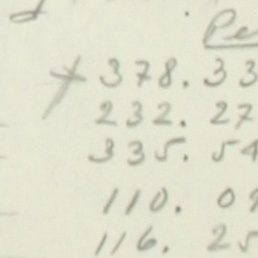 Pe
378. 33
232. 27
335. 54
110. 09
116. 25